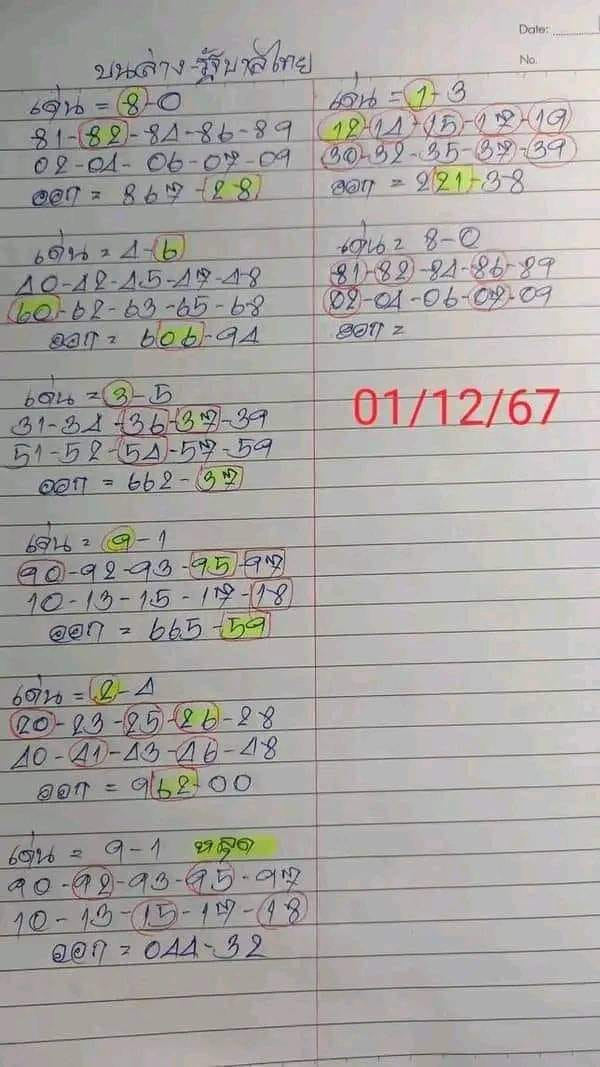 Date:
No.
บนล่าง-รัฐบาลไทย
เด่น = 8-0
81-82-84-86-89
02-04-06-07-09
ออก = 867-28
เด่น = 4-6
40-42-45-47-48
60-62-63-65-68
ออก = 606-94
เด่น = 3-5
31-34-36-37-39
51-52-54-57-59
ออก = 662-37
เด่น = 9-1
90-92-93-95-97
10-13-15-17-18
ออก = 665-59
เด่น = 2-4
20-23-25-26-28
40-41-43-46-48
ออก = 962-00
เด่น = 9-1 หลุด
90-92-93-95-97
10-13-15-17-18
ออก = 044-32
เด่น = 1-3
12-14-15-17-19
30-32-35-37-39
ออก = 221-38
เด่น = 8-0
81-82-84-86-89
02-04-06-07-09
ออก =
01/12/67